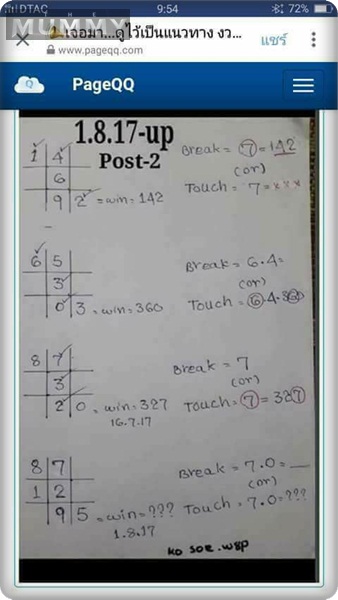 DTAC 9:54 72%
THE
MUMMY
เจอมา...ดูไว้เป็นแนวทาง งว... แชร์
www.pageqq.com
PageQQ
1.8.17-up
Post-2
1 4 Break = 7 = 142
6 (or)
9 2 = win = 142 Touch = 7 = xxx
6 5 Break = 6.4=
3 (or)
0 3 = win = 360 Touch = 6.4.360
8 7 Break = 7
3 (or)
2 0 = win = 327 Touch = 7 = 327
16.7.17
8 7 Break = 7.0 = __
1 2 (or)
9 5 = win = ??? Touch = 7.0 = ???
1.8.17
ko soe.wgp